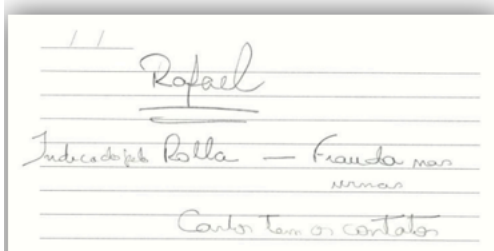 / /
Rafael
Indicado pelo Rolla — Frauda nas
urnas
Carlos tem os contatos